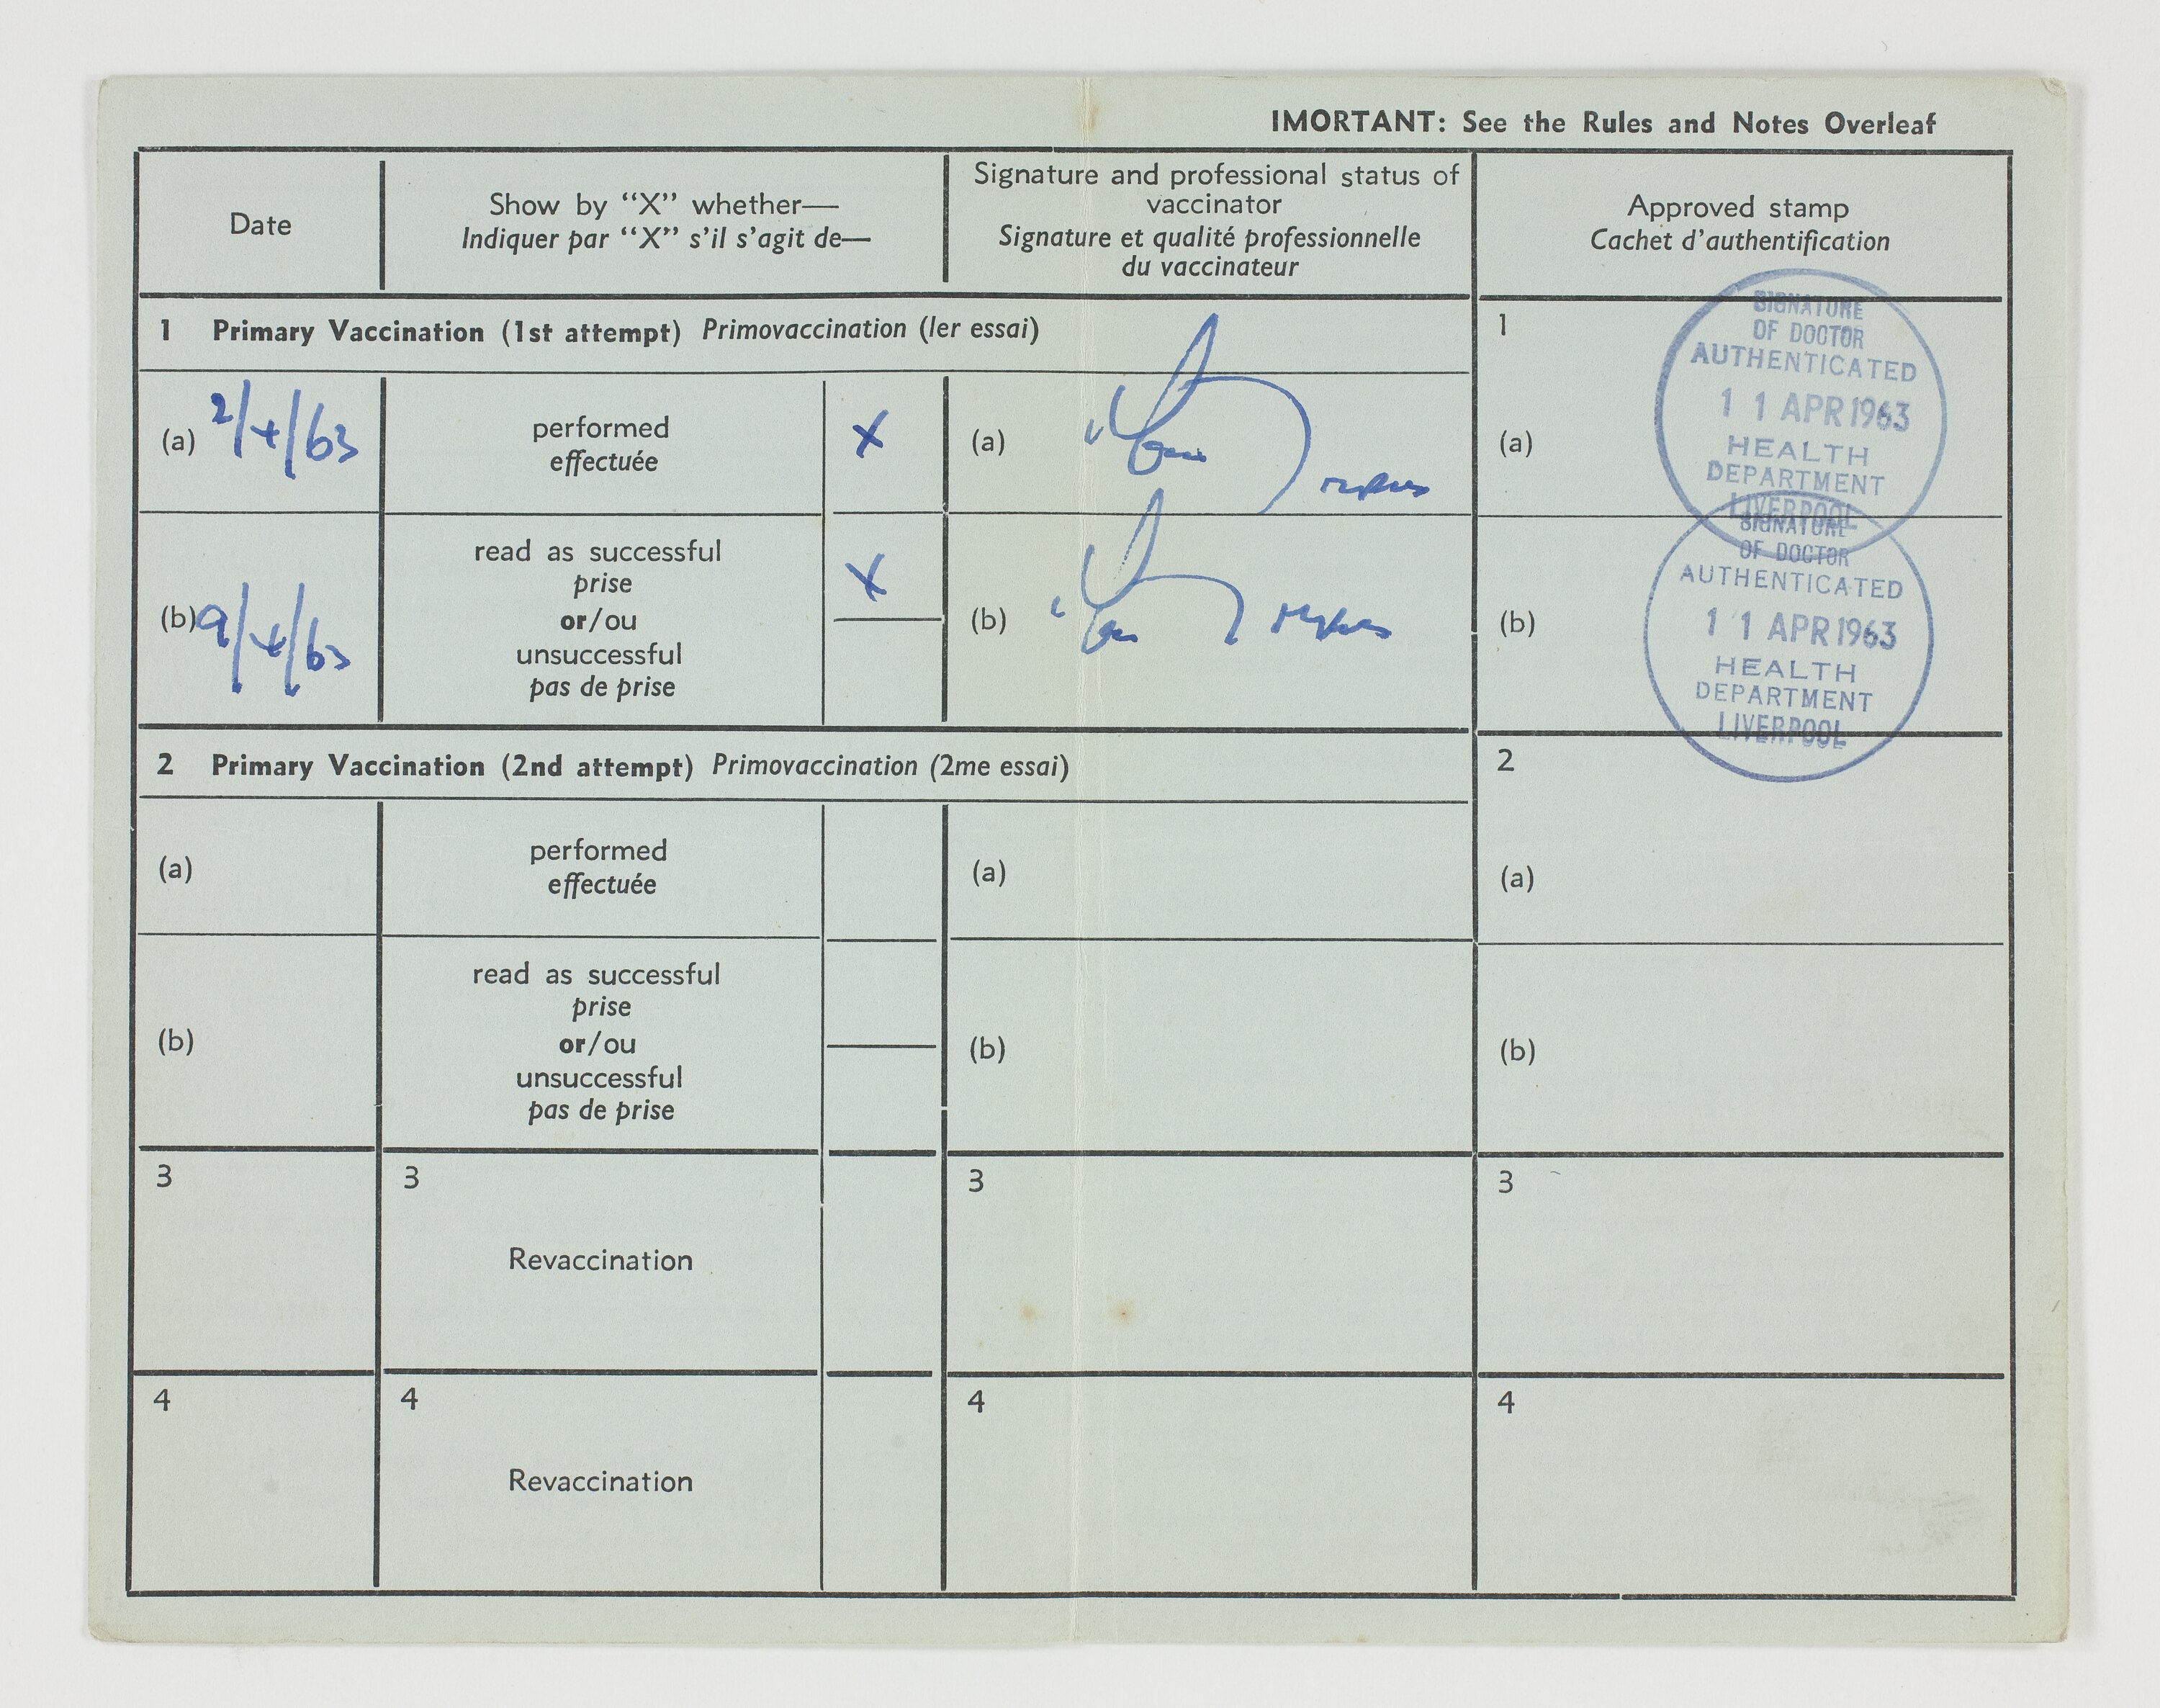 IMORTANT: See the Rules and Notes Overleaf
Date
Show by “X” whether—
Indiquer par “X” s’il s’agit de—
Signature and professional status of
vaccinator
Signature et qualité professionnelle
du vaccinateur
Approved stamp
Cachet d’authentification
1 Primary Vaccination (1st attempt) Primovaccination (1er essai)
1
(a) 2/4/63
performed
effectuée
X
(a)
(a)
SIGNATURE
OF DOCTOR
AUTHENTICATED
11 APR 1963
HEALTH
DEPARTMENT
LIVERPOOL
(b) 9/4/63
read as successful
prise
or/ou
unsuccessful
pas de prise
X
(b)
(b)
SIGNATURE
OF DOCTOR
AUTHENTICATED
11 APR 1963
HEALTH
DEPARTMENT
LIVERPOOL
2 Primary Vaccination (2nd attempt) Primovaccination (2me essai)
2
(a)
performed
effectuée
(a)
(a)
(b)
read as successful
prise
or/ou
unsuccessful
pas de prise
(b)
(b)
3
3
Revaccination
3
3
4
4
Revaccination
4
4